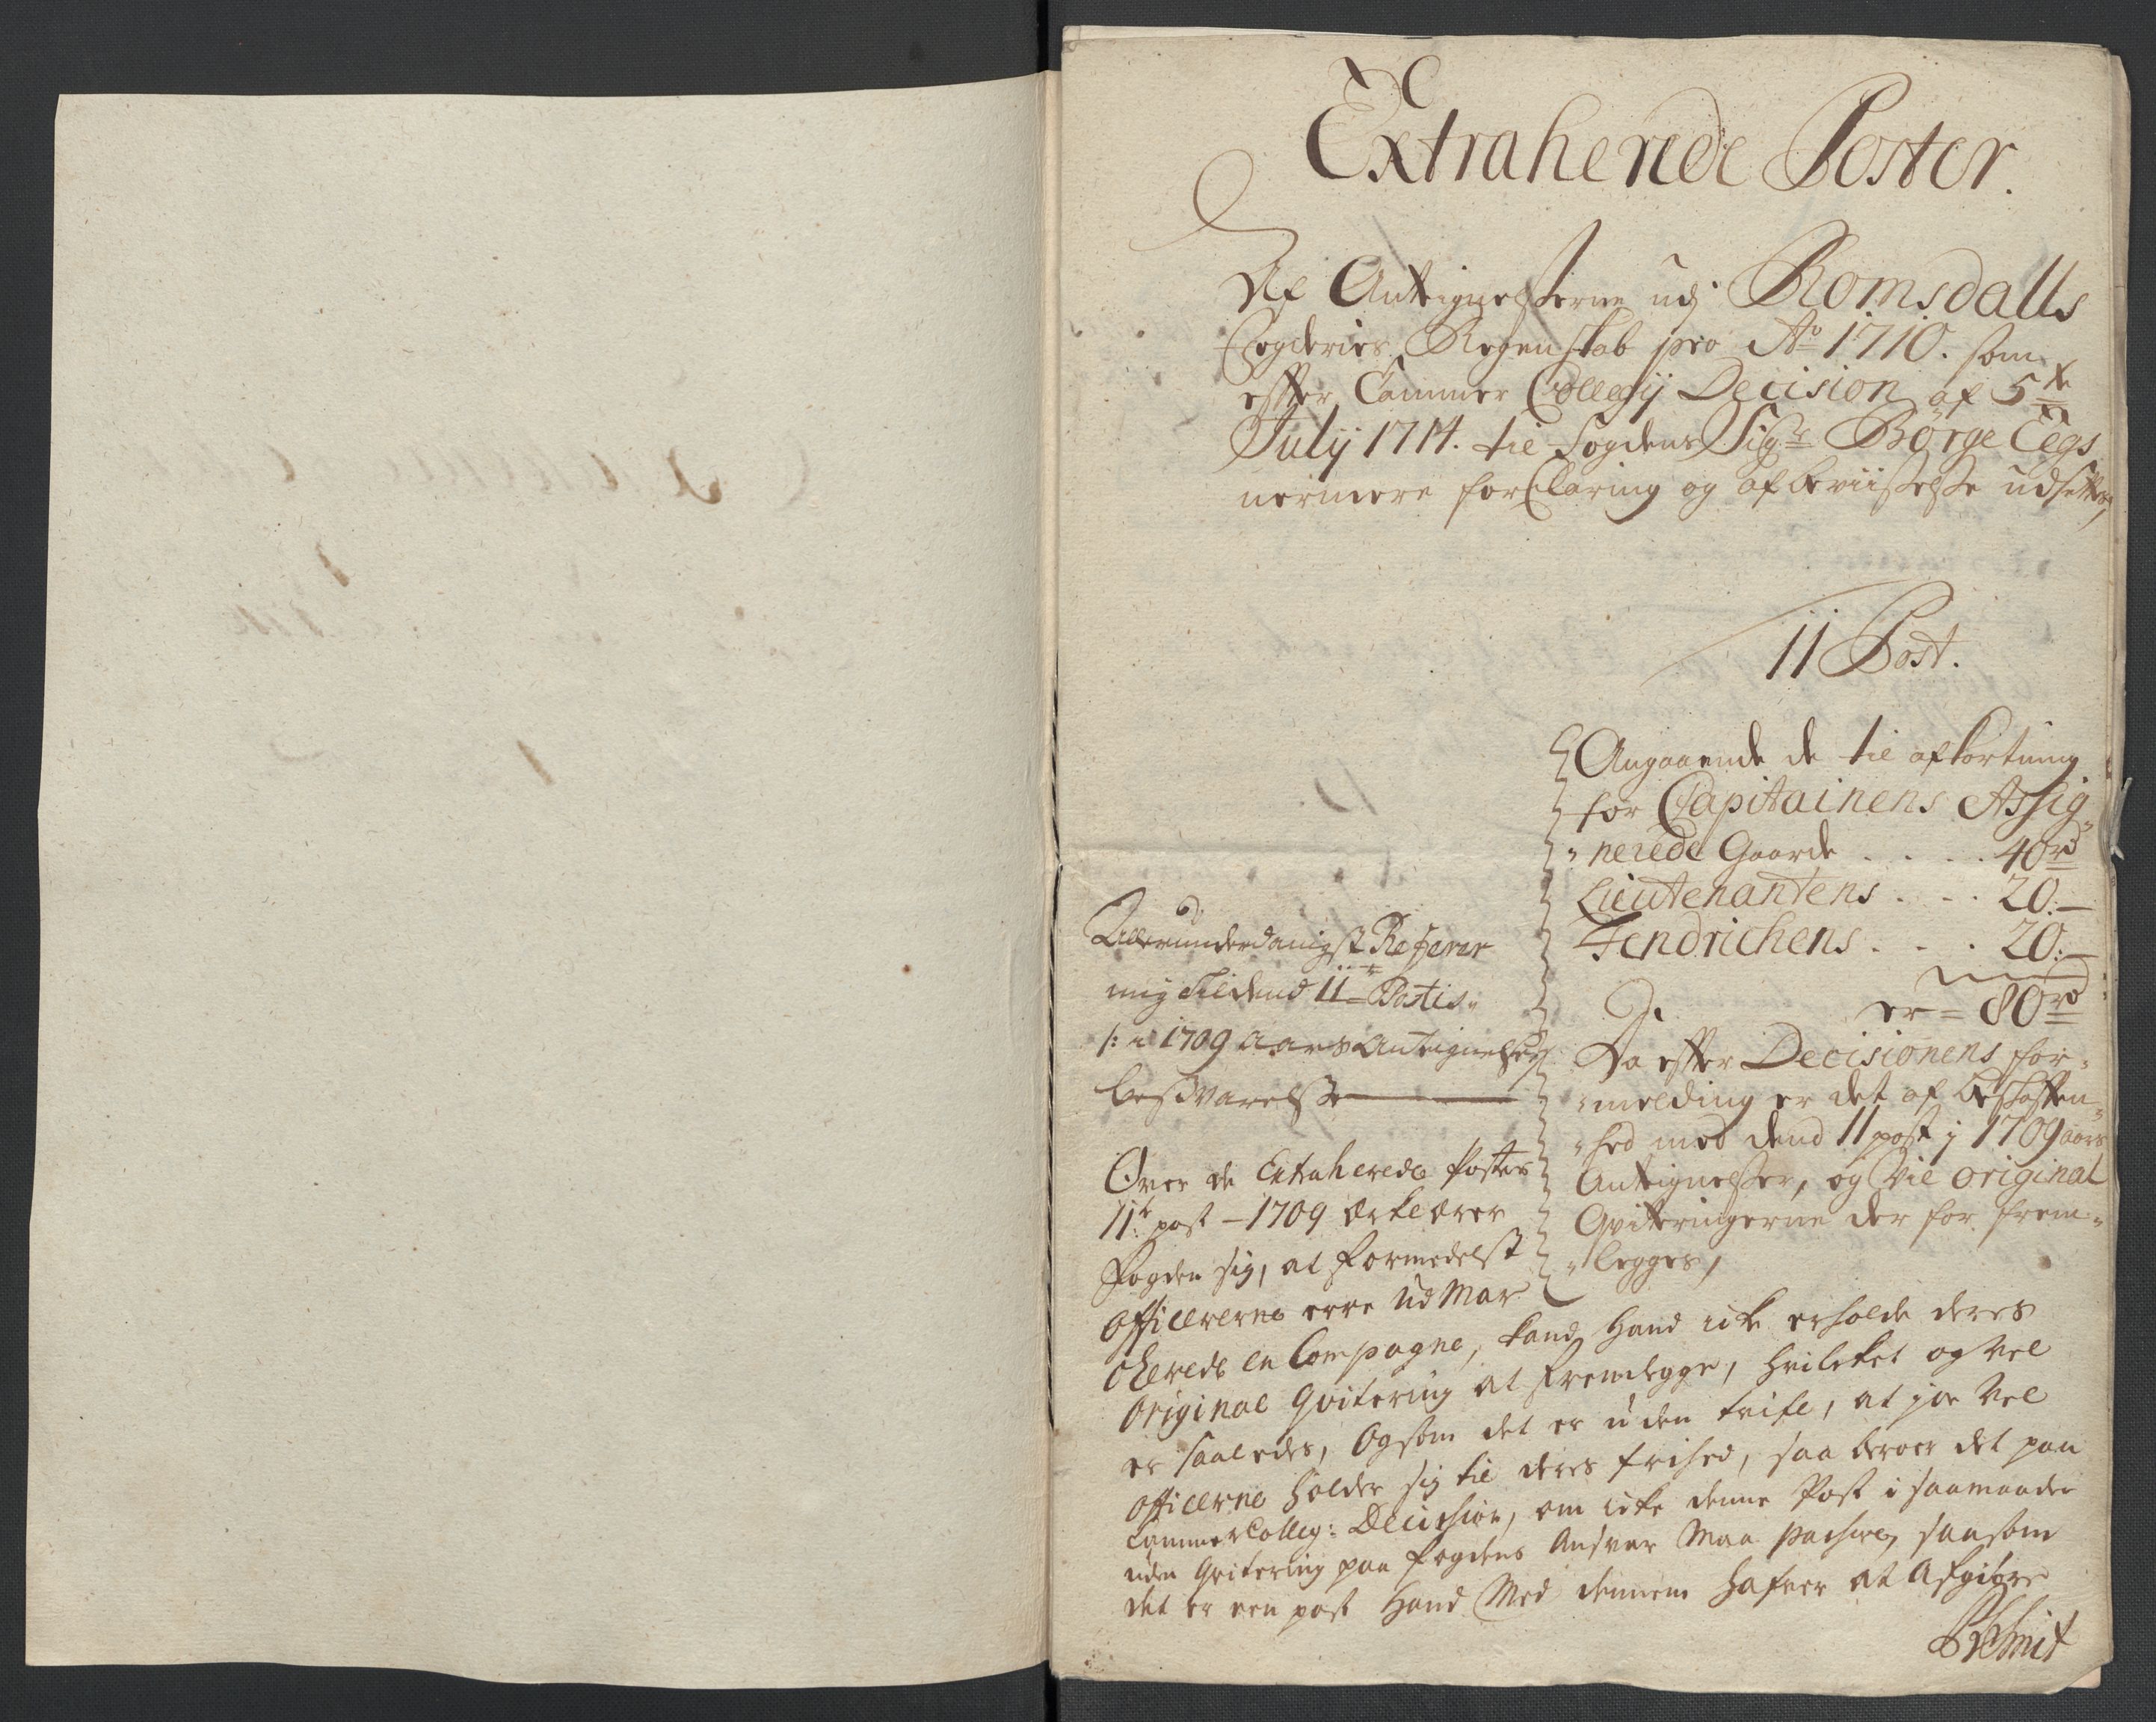 Extraherede Poster.
Af Antegnelserne udj Romsdalls
Fogderies Regenskab pro Ao 1710. som
efter Cammer Collegij Decision af 5te
Julij 1714. til Fogden Sigr Börge Eegs
nermere forClaring og afbeviiselse udsettes,
11 Post.
Angaaende de til afkortning
for Capitainens Assig-
nerede Gaarde . . . . 40rd
Lieutenantens . . . 20:—
Fendrichens . . . 20:—
er = 80rd
Da efter Decisionens for-
melding er det af beskaffen-
hed med dend 11 post j 1709 aars
Antegnelser, og vil original
Qviteringerne der for frem-
legges,
Allerunderdanigst Referer
mig til dend 11te Postis
/: i 1709 aars Antegnelser
besvarelse
Over de Extraherede Poster
11te post – 1709 Erklærer
Fogden sig, at formedelst
Officererne erre ud Mar
cherede en Compagne, kand hand icke erholde deres
Original Qvitering at fremlegge, hvilcket og vel
er saaledes, Og som det er uden tvifl, at joe vel
Officerne holder sig til deres frihed, saa beroer det paa
Cammer Colleg: Decision, om icke denne Post i saamaader
uden Qvitering paa fogdens Ansvar maa passere, saasom
det er een post hand med dennem hafver at Afgiøre